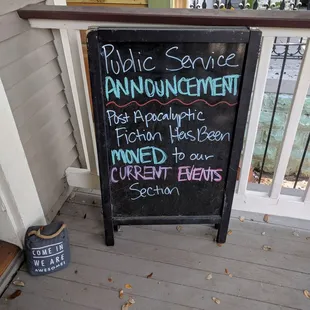 Public Service
ANNOUNCEMENT
Post Apocalyptic
Fiction Has Been
MOVED to our
CURRENT EVENTS
Section
COME IN
WE ARE
AWESOME!